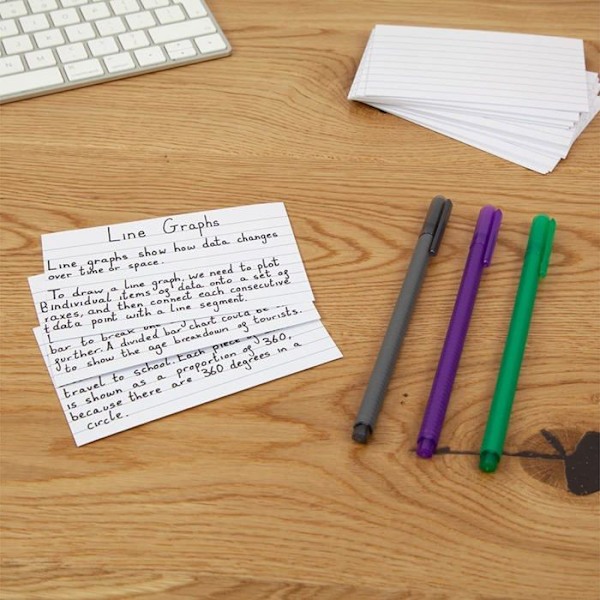 Line Graphs
Line graphs show how data changes
over time or space.
To draw a line graph, we need to plot
individual items of data onto a set of
axes, and then connect each consecutive
data point with a line segment.
bar to break
further. A divided bar chart could be
to show the age breakdown of tourists.
travel to school. Each piece of
is shown as a proportion of 360,
because there are 360 degrees in a
circle.